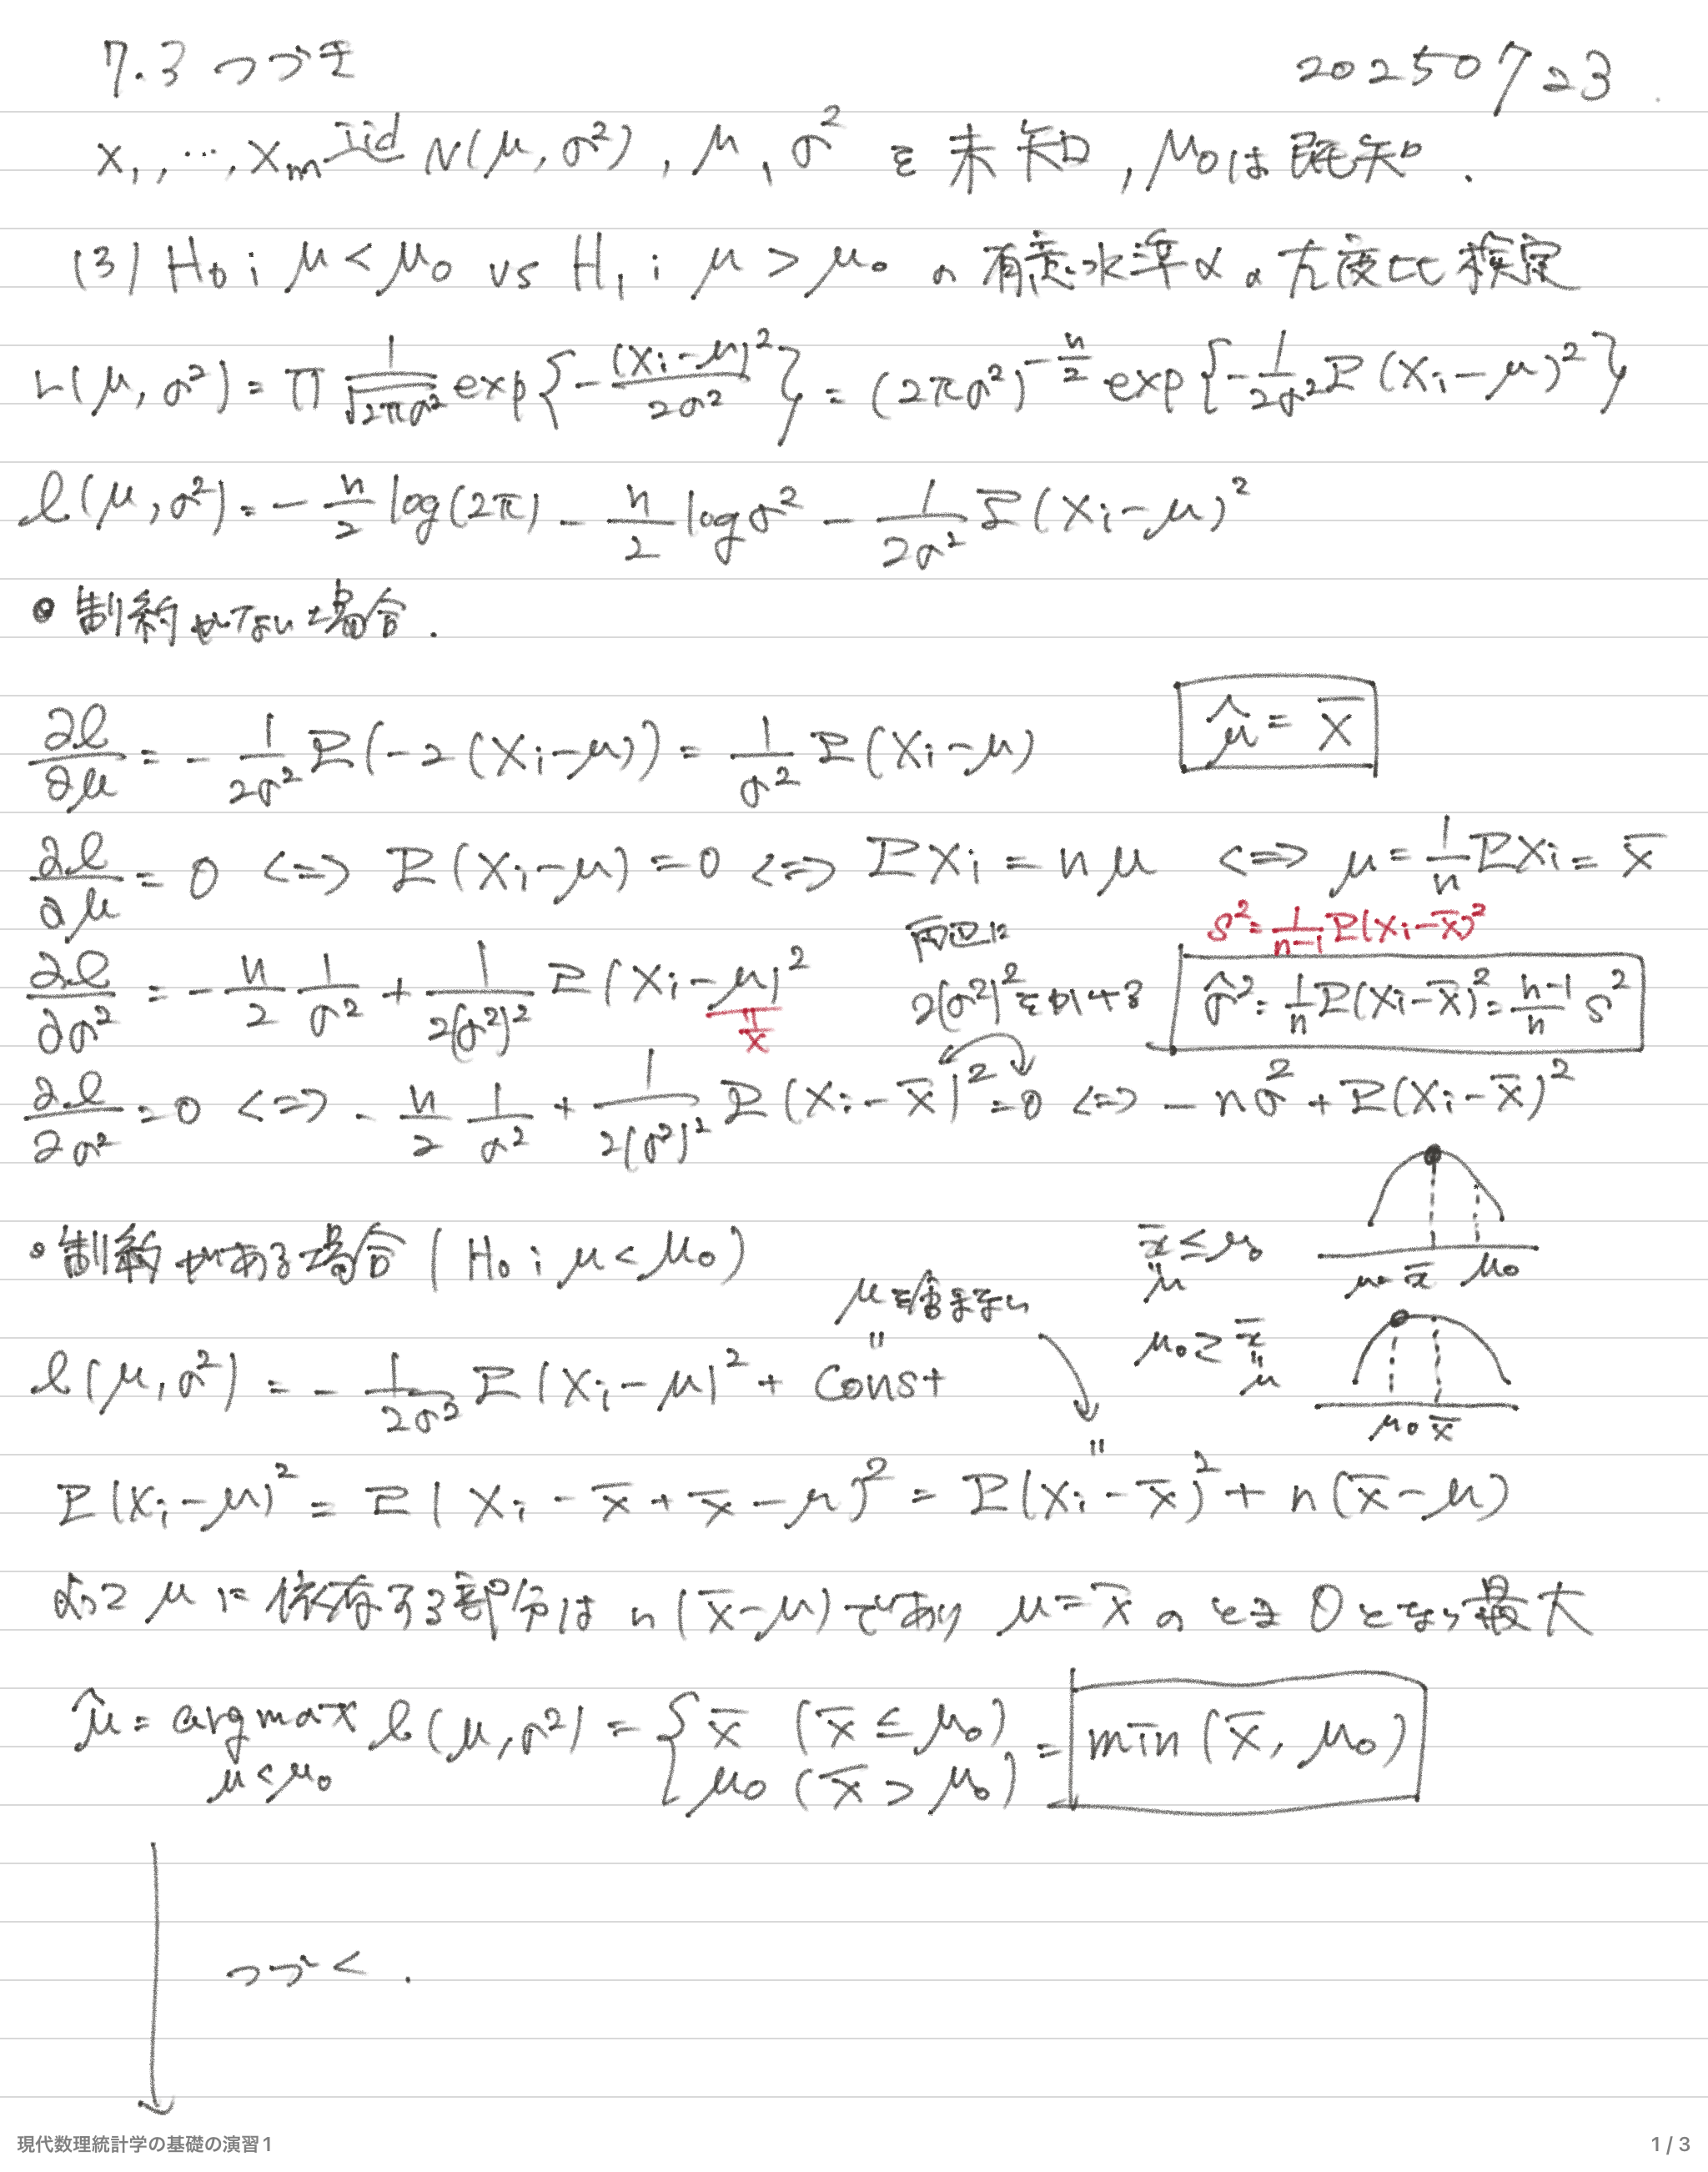 7.3 つづき
20250723
X₁, ⋯, Xₘ iid~ N(μ, σ²), μ, σ² を未知, μ₀は既知.
(3) H₀; μ < μ₀ vs H₁; μ > μ₀ の有意水準αの尤度比検定
L(μ, σ²) = Π 1/√(2πσ²) exp{-(Xi-μ)²/2σ²} = (2πσ²)^(-n/2) exp{-1/2σ² Σ(Xi-μ)²}
l(μ, σ²) = - n/2 log(2π) - n/2 logσ² - 1/2σ² Σ(Xi-μ)²
• 制約がない場合.
∂l/∂μ = - 1/2σ² Σ(-2(Xi-μ)) = 1/σ² Σ(Xi-μ)
μ̂ = X̄
∂l/∂μ = 0 <=> Σ(Xi-μ) = 0 <=> ΣXi = nμ <=> μ = 1/n ΣXi = X̄
S² = 1/(n-1) Σ(Xi-X̄)²
∂l/∂σ² = - n/2 1/σ² + 1/2(σ²)² Σ(Xi-μ)²
"
X̄
両辺に
2(σ²)²をかける
σ̂² = 1/n Σ(Xi-X̄)² = (n-1)/n S²
∂l/∂σ² = 0 <=> - n/2 1/σ² + 1/2(σ²)² Σ(Xi-X̄)² = 0 <=> - nσ² + Σ(Xi-X̄)²
• 制約がある場合 (H₀; μ < μ₀)
x̄ ≤ μ₀
"
μ
μ = x̄ μ₀
μを含まない
"
μ₀ ≥ x̄
"
μ
μ₀ x̄
l(μ, σ²) = - 1/2σ² Σ(Xi-μ)² + Const
"
Σ(Xi-μ)² = Σ(Xi - X̄ + X̄ - μ)² = Σ(Xi-X̄)² + n(X̄-μ)
よって μに依存する部分は n(X̄-μ)であり μ=X̄ のとき 0となり最大
μ̂ = argmax l(μ, σ²) = { X̄ (X̄ ≤ μ₀) = min(X̄, μ₀)
μ<μ₀ μ₀ (X̄ > μ₀)
つづく.
現代数理統計学の基礎の演習1
1 / 3